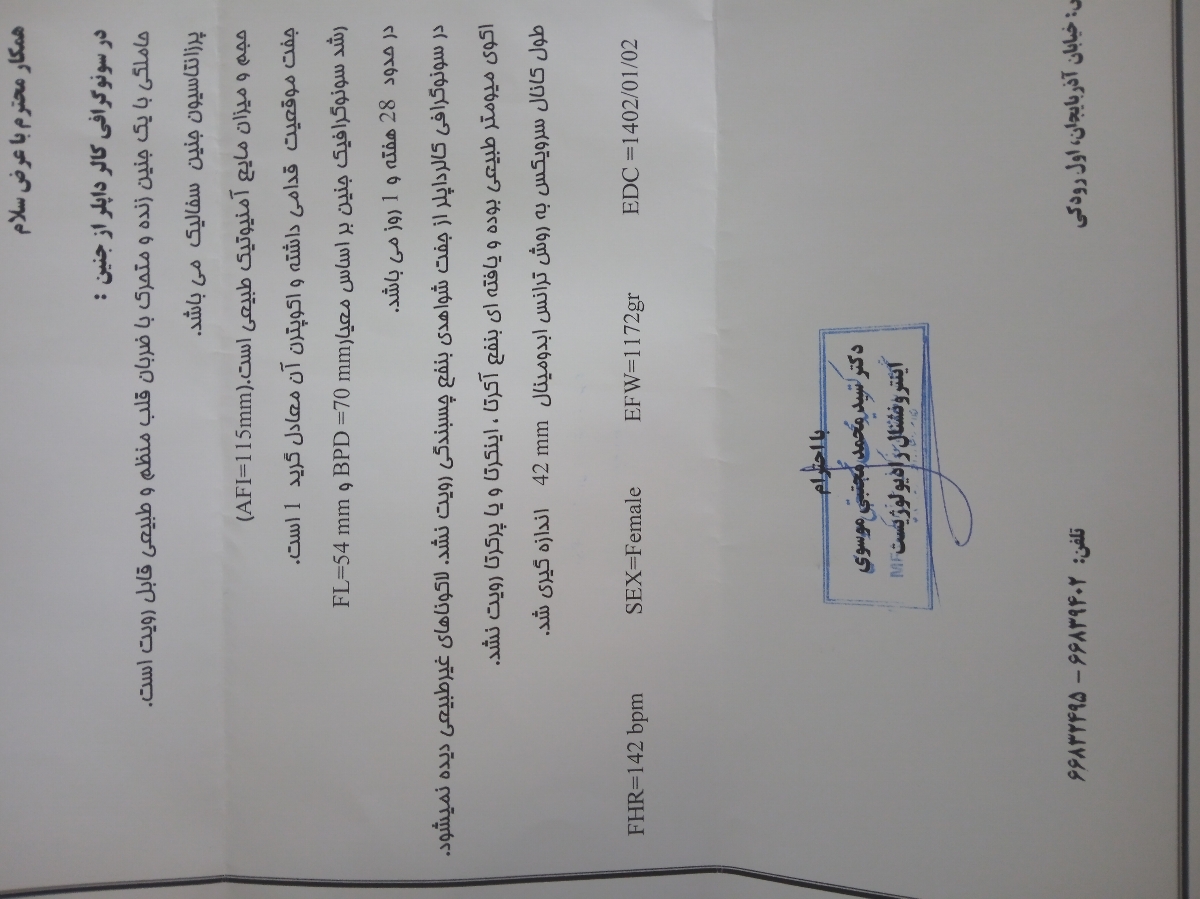 همکار محترم با عرض سلام
در سونوگرافی کالر داپلر از جنین :
حاملگی با یک جنین زنده و متحرک با ضربان قلب منظم و طبیعی قابل رویت است.
پرزانتاسیون جنین سفالیک می باشد.
حجم و میزان مایع آمنیوتیک طبیعی است.(AFI=115mm)
جفت موقعیت قدامی داشته و اکوپترن آن معادل گرید 1 است.
رشد سونوگرافیک جنین بر اساس معیار BPD =70 mm و FL=54 mm
در حدود 28 هفته و 1 روز می باشد.
در سونوگرافی کالرداپلر از جفت شواهدی بنفع چسبندگی رویت نشد. لاکوناهای غیرطبیعی دیده نمیشود.
اکوی میومتر طبیعی بوده و یافته ای بنفع آکرتا ، اینکرتا و یا پرکرتا رویت نشد.
طول کانال سرویکس به روش ترانس ابدومینال 42 mm اندازه گیری شد.
FHR=142 bpm SEX=Female EFW=1172gr EDC =1402/01/02
با احترام
دکتر سید محمد مجتبی موسوی
اینترونشنال رادیولوژیست
خیابان آذربایجان، اول رودکی
تلفن: ۶۶۸۳۹۴۰۲ – ۶۶۸۳۲۴۹۵